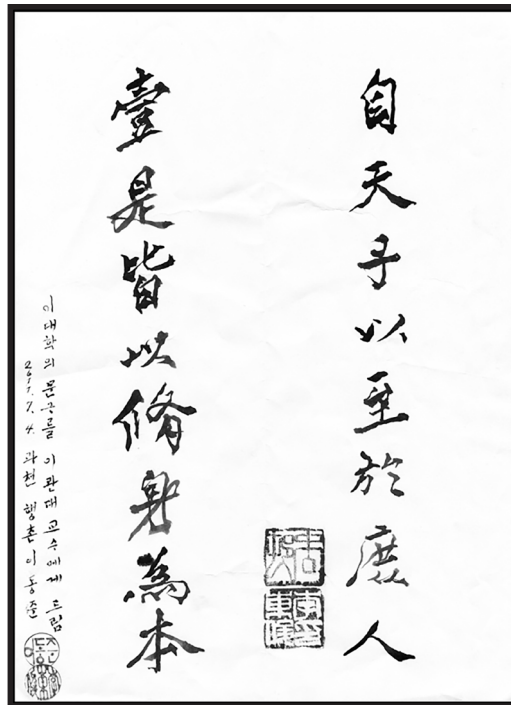 自天子以至於庶人
壹是皆以脩身為本
이 대학의 문구를 이관대 교수에게 드림
2017. 7. 4. 과천 행촌 이동준